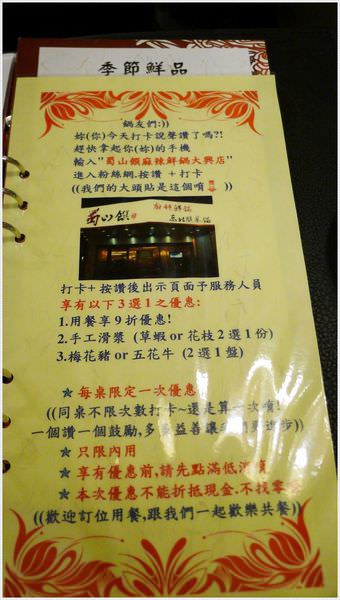 季節鮮品
鍋友們:))
妳(你)今天打卡說聲讚了嗎?!
趕快拿起你(妳)的手機
輸入"蜀山饌麻辣鮮鍋大興店"
進入粉絲網.按讚 +打卡
((我們的大頭貼是這個唷 ))
蜀山饌
打卡+按讚後出示頁面予服務人員
享有以下3選1之優惠:
1.用餐享9折優惠!
2.手工滑漿 (草蝦 or 花枝 2選1份)
3.梅花豬 or 五花牛 (2選1盤)
★ 每桌限定一次優惠
((同桌不限次數打卡~還是算一次唷!
一個讚一個鼓勵,多多益善讓 進步))
★ 只限內用
★ 享有優惠前,請先點滿低消唷
★ 本次優惠不能折抵現金.不找零
((歡迎訂位用餐,跟我們一起歡樂共餐))